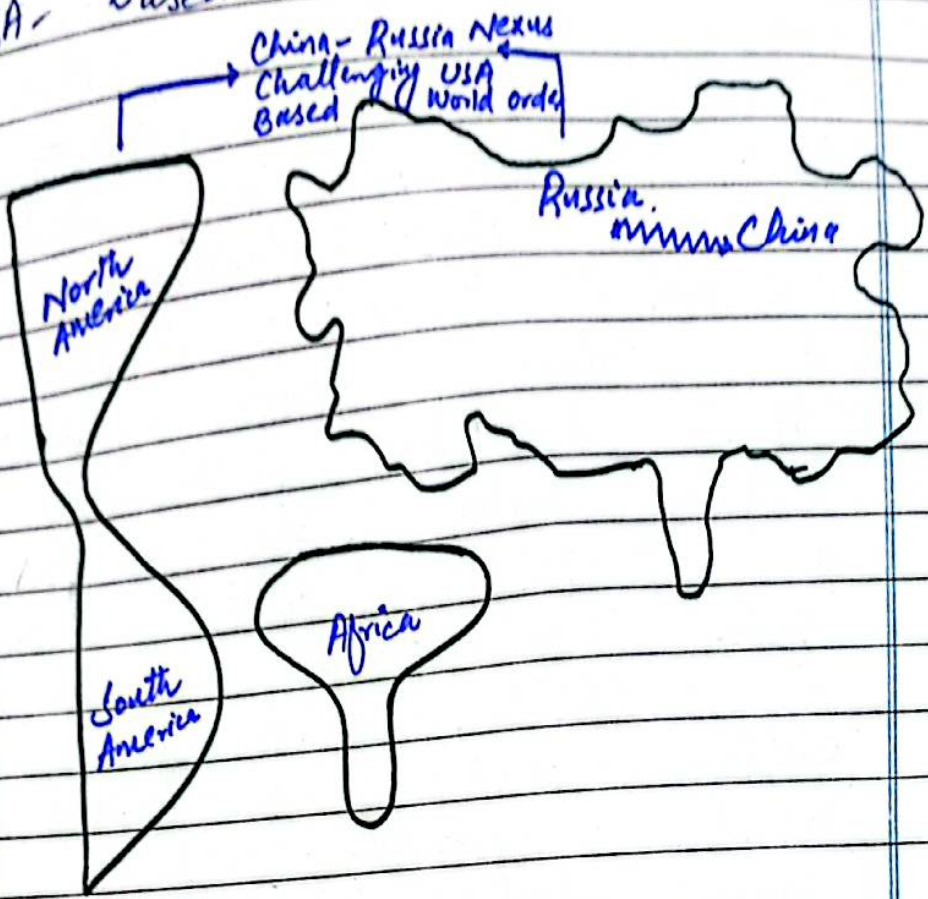 A-
China - Russia Nexus
Challenging USA
Based World order
Russia.
China
North
America
Africa
South
America